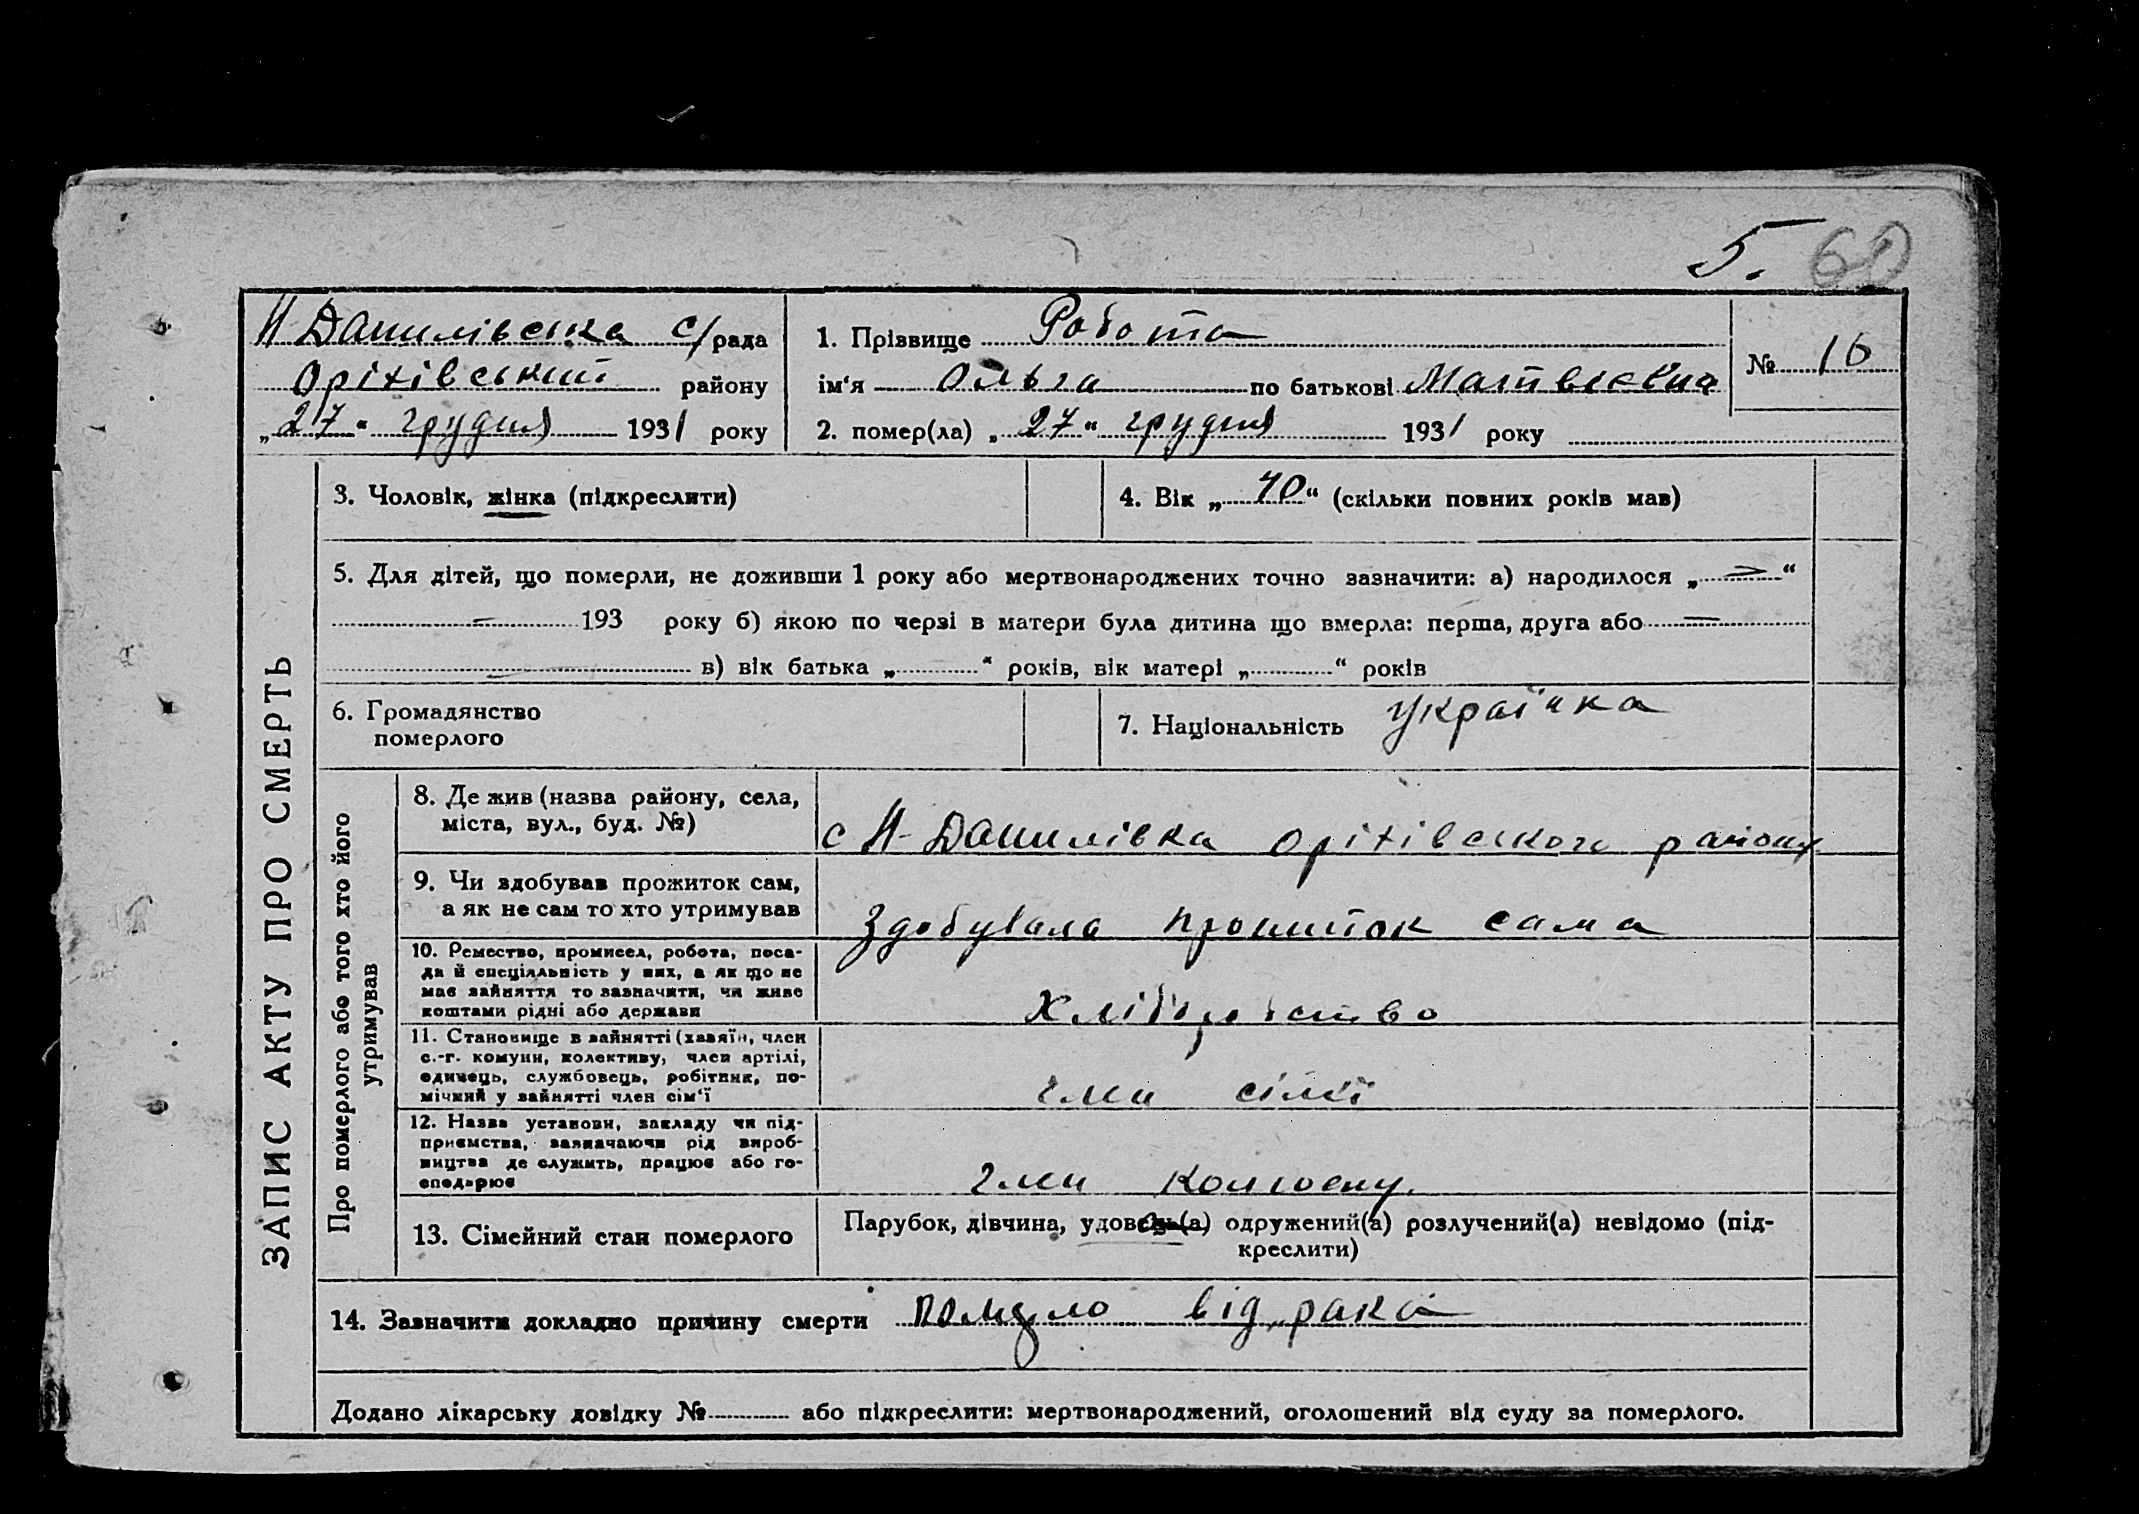 5. 60
Н Данилівська с/рада
Оріхівський району
„27“ грудня 1931 року
1. Прізвище Робота
ім‘я Ольга по батькові Матвієвна
№ 16
2. помер(ла) „27“ грудня 1931 року
ЗАПИС АКТУ ПРО СМЕРТЬ
3. Чоловік, жінка (підкреслити)
4. Вік „70“ (скільки повних років мав)
5. Для дітей, що померли, не доживши 1 року або мертвонароджених точно зазначити: а) народилося „—“
— 193 року б) якою по черзі в матери була дитина що вмерла: перша, друга або —
— в) вік батька „ “ років, вік матері „ “ років
6. Громадянство
померлого
7. Національність Українка
Про померлого або того хто його
утримував
8. Де жив (назва району, села,
міста, вул., буд. №)
с Н-Данилівка Оріхівського району
9. Чи здобував прожиток сам,
а як не сам то хто утримував
Здобувала прожиток сама
10. Ремество, промисел, робота, поса-
да й спеціяльність у них, а як що не
має зайняття то зазначити, чи живе
коштами рідні або держави
Хліборобство
11. Становище в зайнятті (хазяїн, член
с.-г. комуни, колективу, член артілі,
одинець, службовець, робітник, по-
мічний у зайнятті член сім‘ї
член сімї
12. Назва установи, закладу чи під-
приємства, зазначаючи рід вироб-
ництва де служить, працює або го-
сподарює
член колгоспу.
13. Сімейний стан померлого
Парубок, дівчина, удовець(а) одружений(а) розлучений(а) невідомо (під-
креслити)
14. Зазначити докладно причину смерти від рака
Додано лікарську довідку № або підкреслити: мертвонароджений, оголошений від суду за померлого.